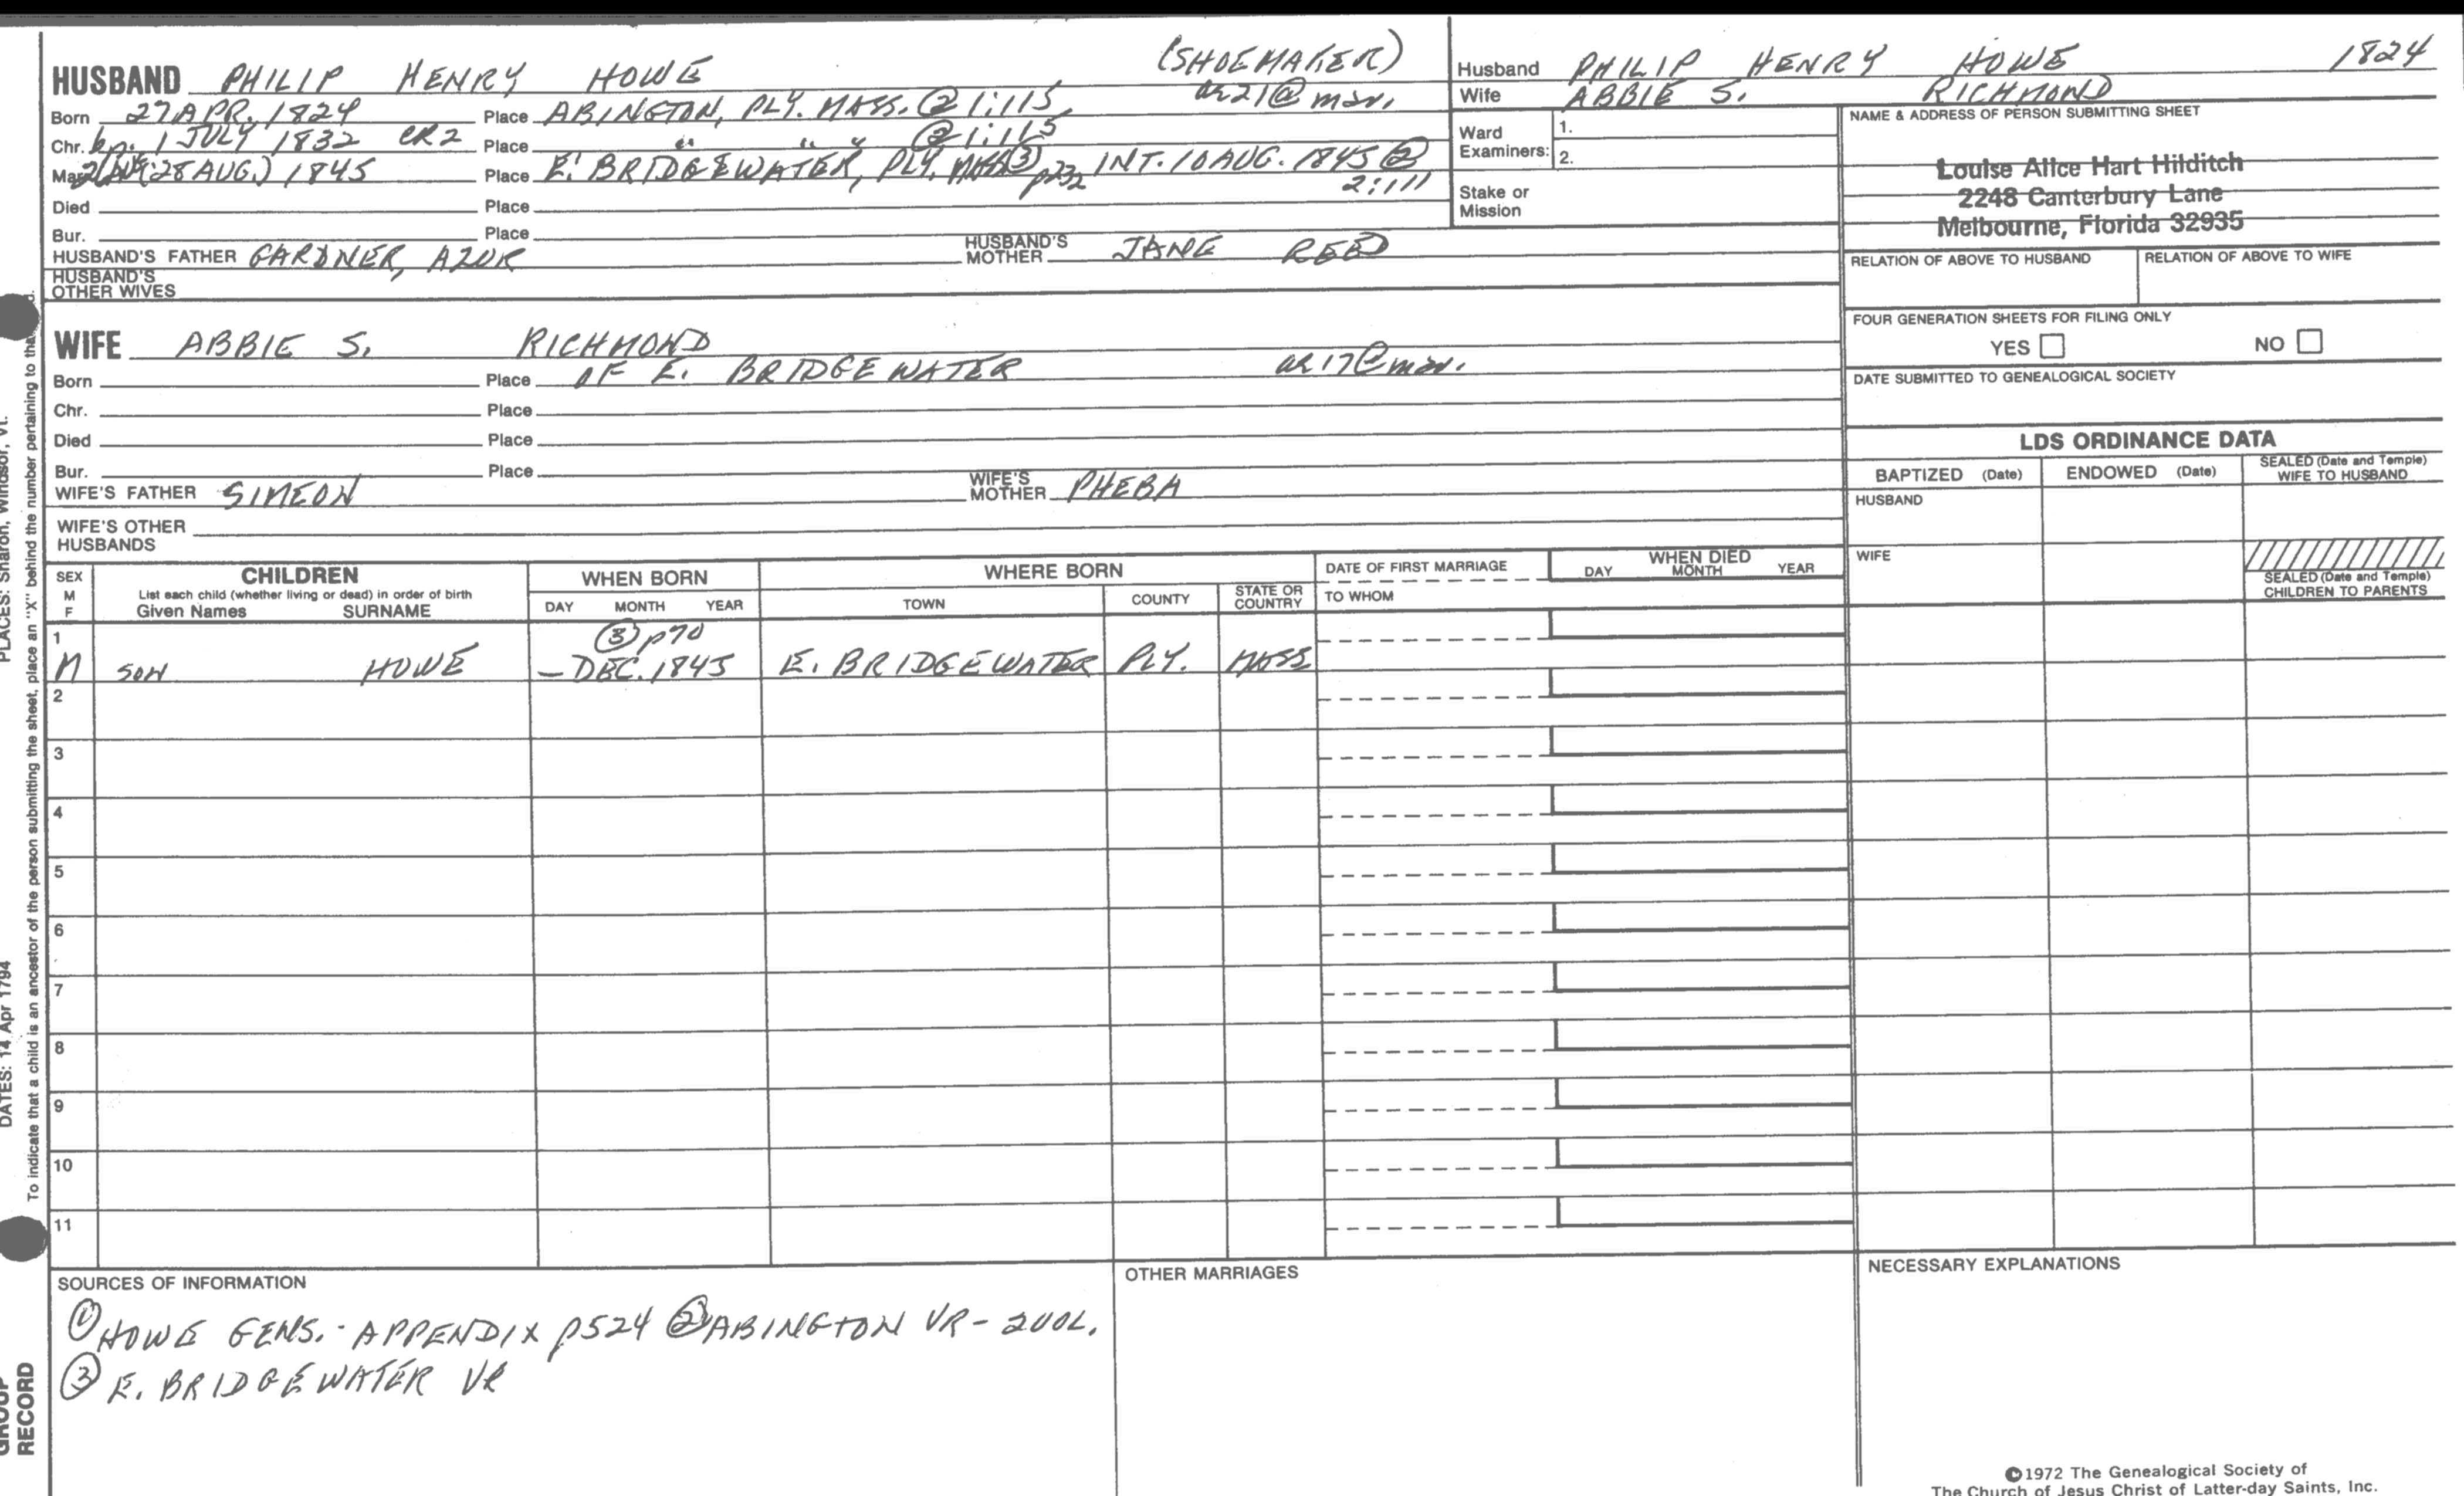 HUSBAND PHILIP HENRY HOWE (SHOEMAKER)
Born 27 APR. 1824 Place ABINGTON, PLY. MASS. ② 1:115 ae 21 @ mar.
Chr. bp. 1 JULY 1832 CR2 Place " " " ② 1:115
Mar. 28 AUG.) 1845 Place E. BRIDGEWATER, PLY. MASS ③ p232 INT. 10 AUG. 1845 ②
2:111
Died Place
Bur. Place
HUSBAND'S FATHER GARDNER, AZOR HUSBAND'S MOTHER JANE REED
HUSBAND'S OTHER WIVES
Husband PHILIP HENRY HOWE 1824
Wife ABBIE S. RICHMOND
Ward Examiners: 1.
2.
Stake or Mission
NAME & ADDRESS OF PERSON SUBMITTING SHEET
Louise Alice Hart Hilditch
2248 Canterbury Lane
Melbourne, Florida 32935
RELATION OF ABOVE TO HUSBAND RELATION OF ABOVE TO WIFE
FOUR GENERATION SHEETS FOR FILING ONLY
YES NO
DATE SUBMITTED TO GENEALOGICAL SOCIETY
WIFE ABBIE S. RICHMOND
Born Place OF E. BRIDGEWATER ae 17 @ mar.
Chr. Place
Died Place
Bur. Place
WIFE'S FATHER SIMEON WIFE'S MOTHER PHEBA
WIFE'S OTHER HUSBANDS
LDS ORDINANCE DATA
BAPTIZED (Date) ENDOWED (Date) SEALED (Date and Temple) WIFE TO HUSBAND
HUSBAND
WIFE
SEALED (Date and Temple) CHILDREN TO PARENTS
SEX M F CHILDREN WHEN BORN WHERE BORN DATE OF FIRST MARRIAGE WHEN DIED
List each child (whether living or dead) in order of birth
Given Names SURNAME DAY MONTH YEAR TOWN COUNTY STATE OR COUNTRY TO WHOM DAY MONTH YEAR
1 ③ p70
M SON HOWE – DEC. 1845 E. BRIDGEWATER PLY. MASS
2
3
4
5
6
7
8
9
10
11
SOURCES OF INFORMATION OTHER MARRIAGES NECESSARY EXPLANATIONS
① HOWE GENS. - APPENDIX p524 ② ABINGTON VR - 2VOL.
③ E. BRIDGEWATER VR
©1972 The Genealogical Society of
The Church of Jesus Christ of Latter-day Saints, Inc.
PLACES: Sharon, Windsor, Vt.
DATES: 14 Apr 1794
To indicate that a child is an ancestor of the person submitting the sheet, place an "X" behind the number pertaining to
GROUP
RECORD